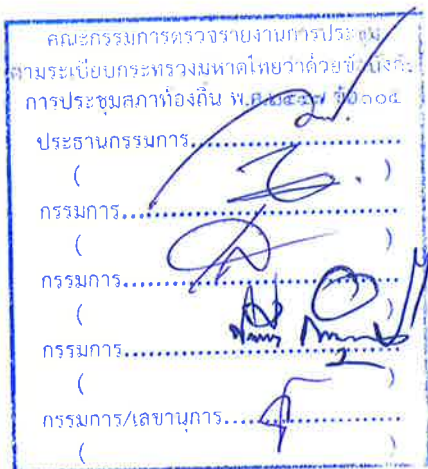 คณะกรรมการตรวจรายงานการประชุม
ตามระเบียบกระทรวงมหาดไทยว่าด้วยข้อบังคับ
การประชุมสภาท้องถิ่น พ.ศ.๒๕๔๗ ข้อ ๑๐๔
ประธานกรรมการ..............................
( )
กรรมการ........................................
( )
กรรมการ........................................
( )
กรรมการ........................................
( )
กรรมการ/เลขานุการ..........................
( )